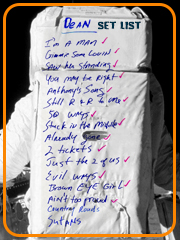 DEAN SET LIST
I'm A MAN
Gimme Some Lovin
Saw her Standing
You may be Right
Anthony's Song
Still R & R to me
50 ways
Stuck in the Middle
Already gone
2 tickets
Just the 2 of us
Evil ways
Brown EYE GIRL
Ain't too proud
Country Roads
Sultans